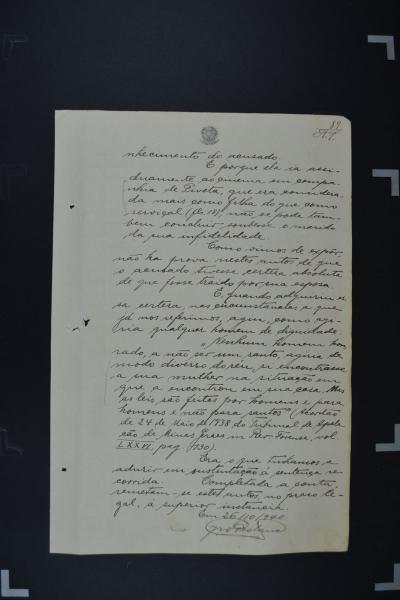 82
nhecimento do acusado.
E porque ela ia assi-
duamente ao cinema em compa-
nhia de Piveta, que era considera-
da mais como filha do que como
serviçal (fls. 18), não se pode tam-
bem concluir, soubesse o marido
da sua infidelidade.
Como vimos de expôr,
não ha prova nestes autos de que
o acusado tivesse certeza absoluta
de que fosse traido por sua esposa.
E, quando adquiriu es-
sa certeza, nas circunstancias a que
já nos referimos, agiu, como agi-
ria qualquer homem de dignidade.
"Nenhum homem hon-
rado, a não ser um santo, agiria de
modo diverso do réu, si encontrasse
a sua mulher na situação em
que a encontrou em sua casa. Mas
as leis são feitas por homens e para
homens e não para santos" (Acordão
de 24 de Maio de 1938 do Tribunal de Apela-
ção de Minas Geraes in Rev. Forense, vol.
LXXVI, pag. 130).
Era o que tinhamos a
aduzir em sustentação á sentença re-
corrida. Completada a conta,
remetam-se estes autos, no praso le-
gal, á superior instancia.
Em 26/10/940.